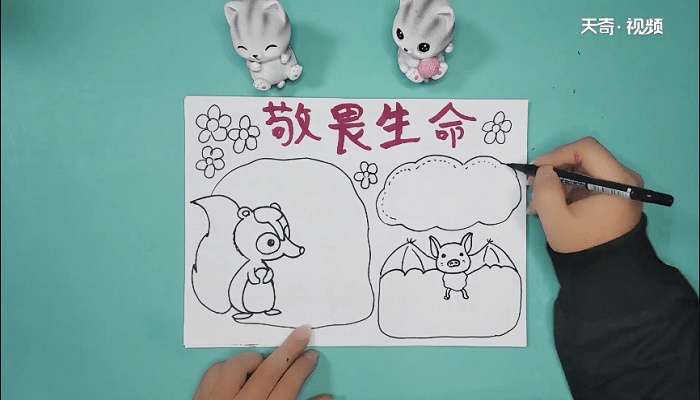 天奇·视频
敬畏生命